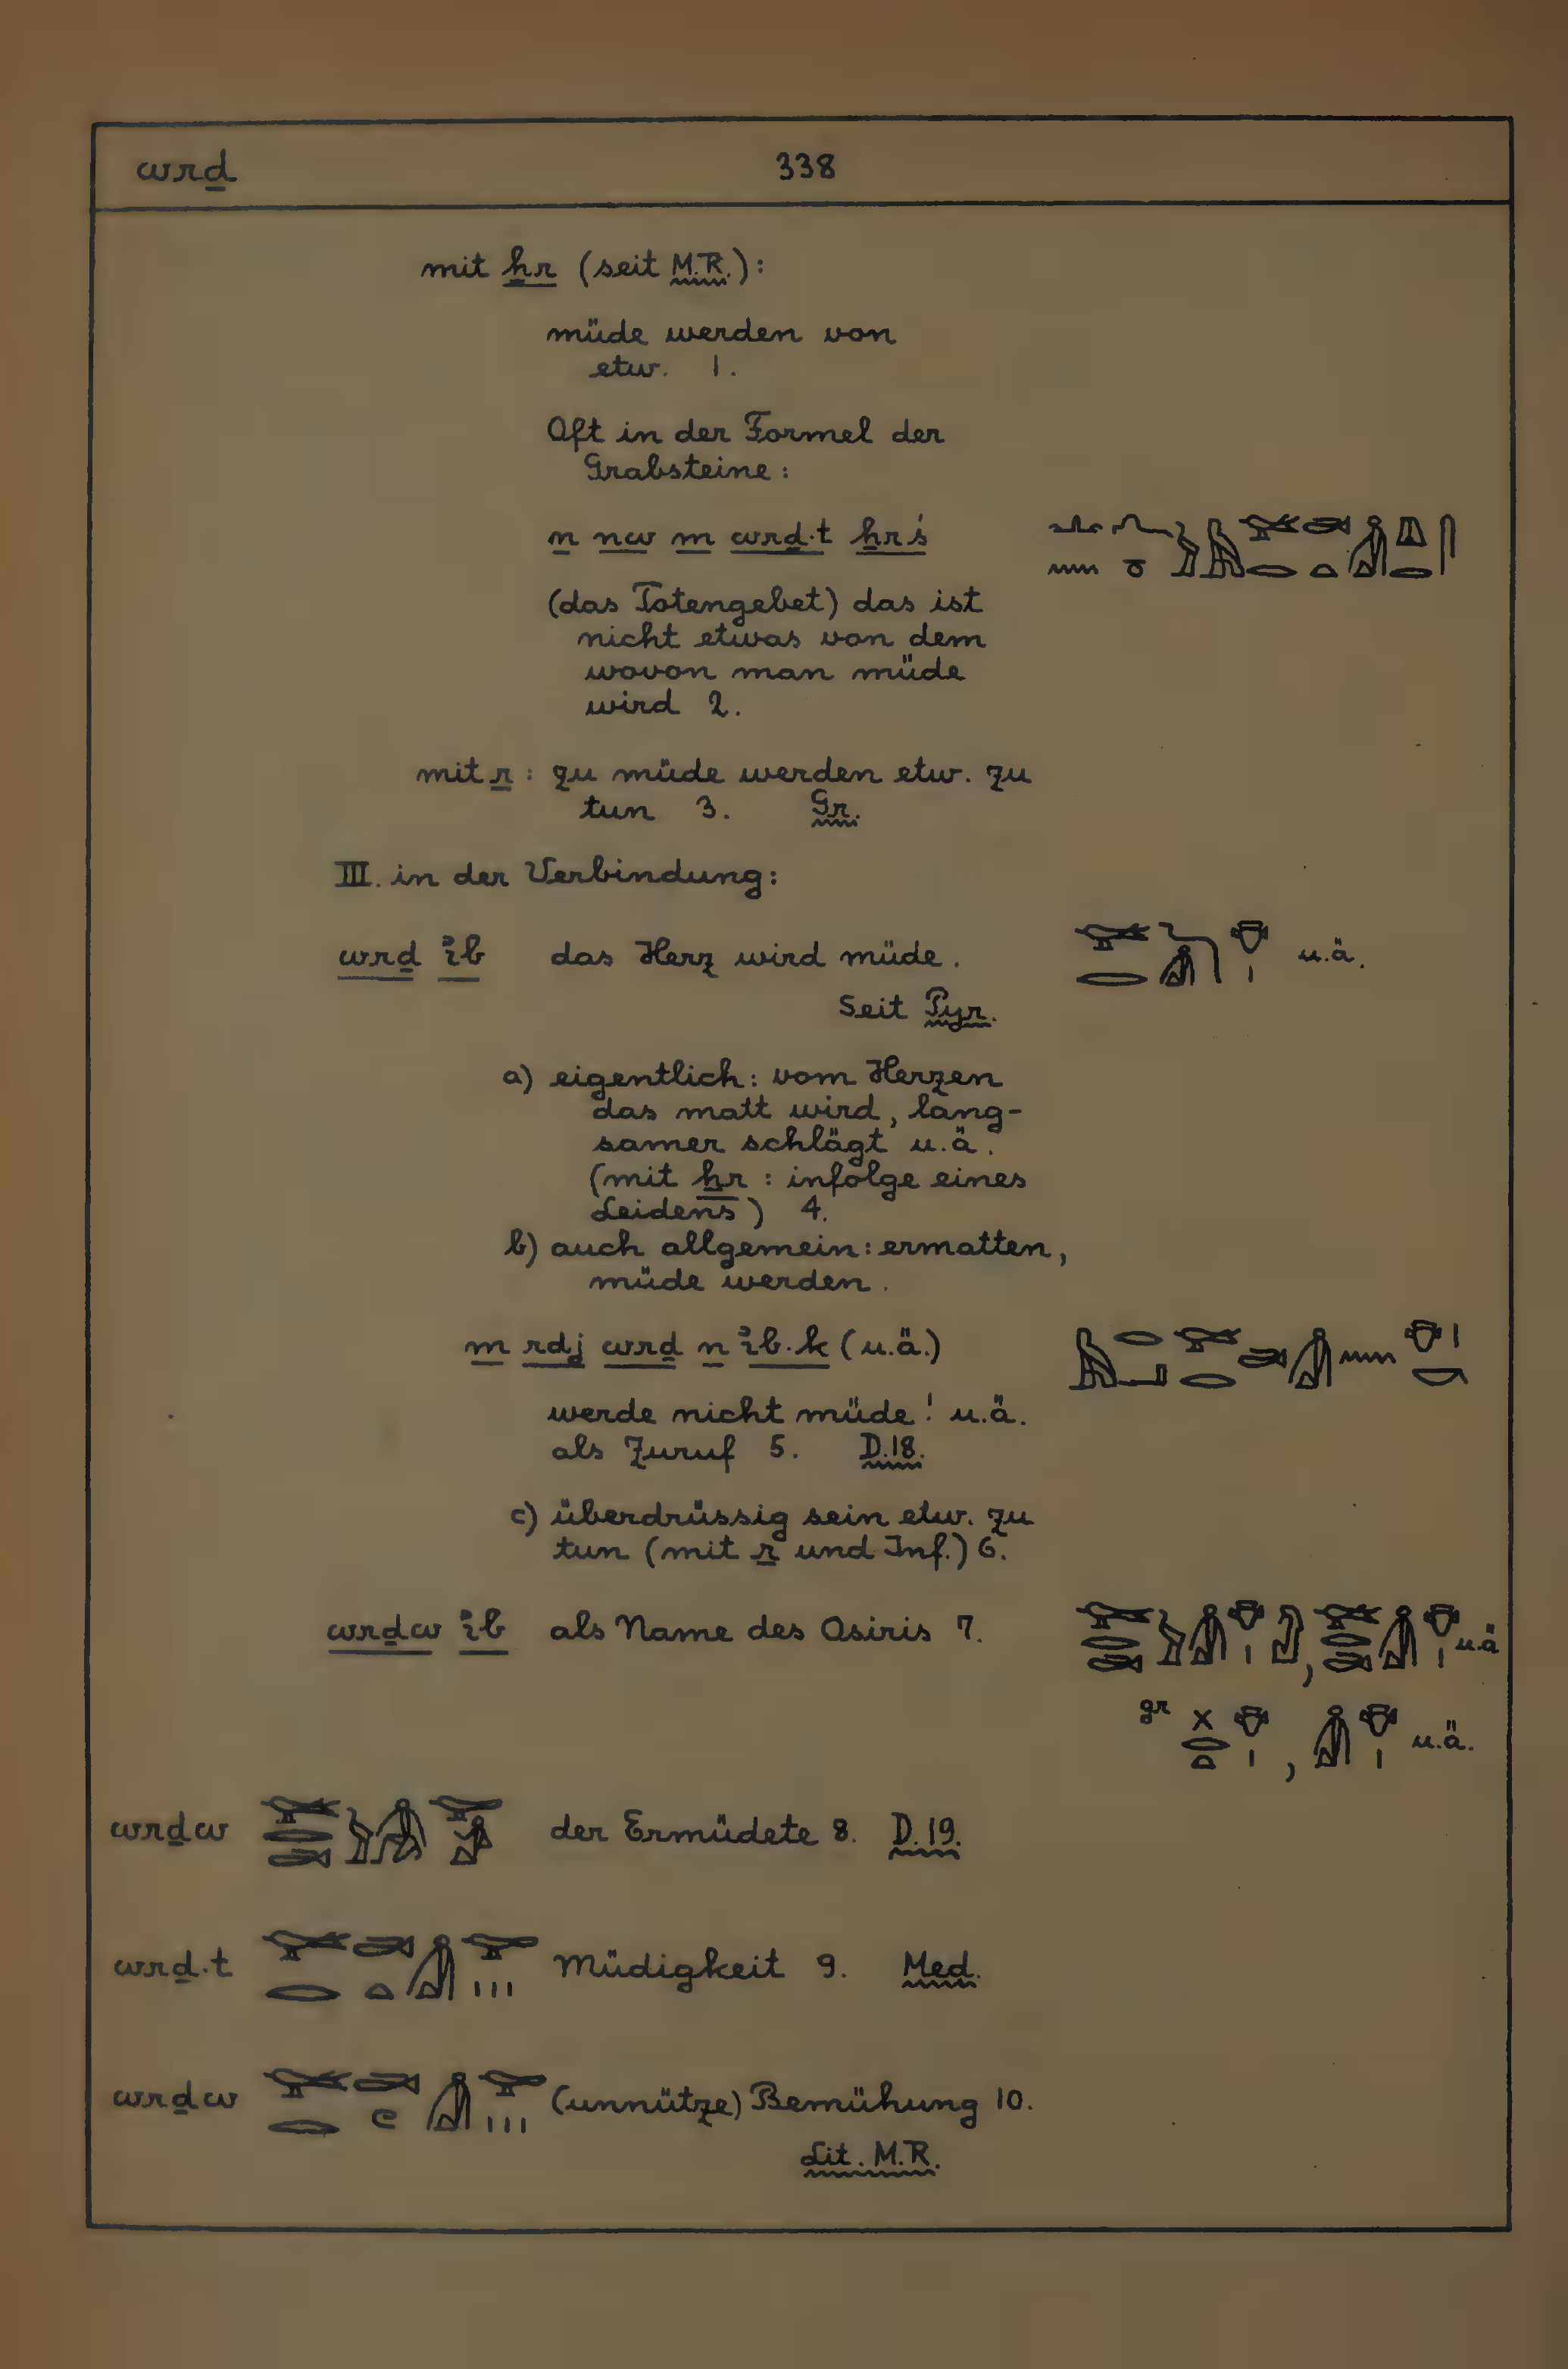 wrḏ 338
mit ẖr (seit M.R.):
müde werden von
etw. 1.
Oft in der Formel der
Grabsteine:
n nw m wrḏ·t ẖr ś
(das Totengebet) das ist
nicht etwas von dem
wovon man müde
wird 2.
mit r : zu müde werden etw. zu
tun 3. Gr.
III. in der Verbindung:
wrḏ ꞽb das Herz wird müde. u.ä.
Seit Pyr.
a) eigentlich: vom Herzen
das matt wird, lang-
samer schlägt u.ä.
(mit ẖr : infolge eines
Leidens) 4.
b) auch allgemein: ermatten,
müde werden.
m rdj wrḏ n ꞽb·k (u.ä.)
werde nicht müde! u.ä.
als Zuruf 5. D.18.
c) überdrüssig sein etw. zu
tun (mit r und Inf.) 6.
wrḏw ꞽb als Name des Osiris 7. , u.ä
gr , u.ä.
wrḏw der Ermüdete 8. D.19.
wrḏ·t Müdigkeit 9. Med.
wrḏw (unnütze) Bemühung 10.
Lit. M.R.